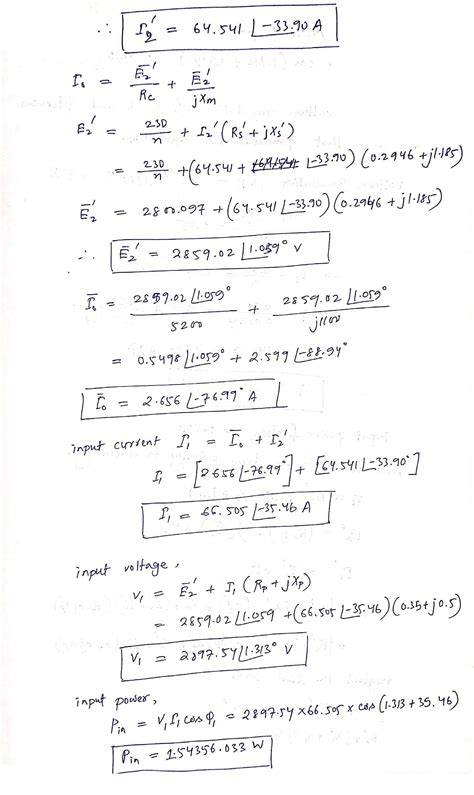 ∴ I₂' = 64.541 ∠-33.90 A
I₀ = E̅₂'/Rc + E̅₂'/jXm
E₂' = 230/n + I₂' (Rs' + jXs')
= 230/n + (64.541 + ∠-33.90) (0.2946 + j1.185)
E̅₂' = 2800.097 + (64.541 ∠-33.90) (0.2946 + j1.185)
∴ E̅₂' = 2859.02 ∠1.059° V
I̅₀ = 2859.02 ∠1.059°/5200 + 2859.02 ∠1.059°/j1100
= 0.5498 ∠1.059° + 2.599 ∠-88.94°
I̅₀ = 2.656 ∠-76.99° A
input current I₁ = I̅₀ + I₂'
I₁ = [2.656 ∠-76.99°] + [64.541 ∠-33.90°]
I₁ = 66.505 ∠-35.46 A
input voltage,
V₁ = E̅₂' + I₁ (Rp + jXp)
= 2859.02 ∠1.059 + (66.505 ∠-35.46) (0.35 + j0.5)
V₁ = 2897.54 ∠1.313° V
input power,
Pin = V₁I₁ cos φ₁ = 2897.54 × 66.505 × cos (1.313 + 35.46)
Pin = 1.54356.033 W